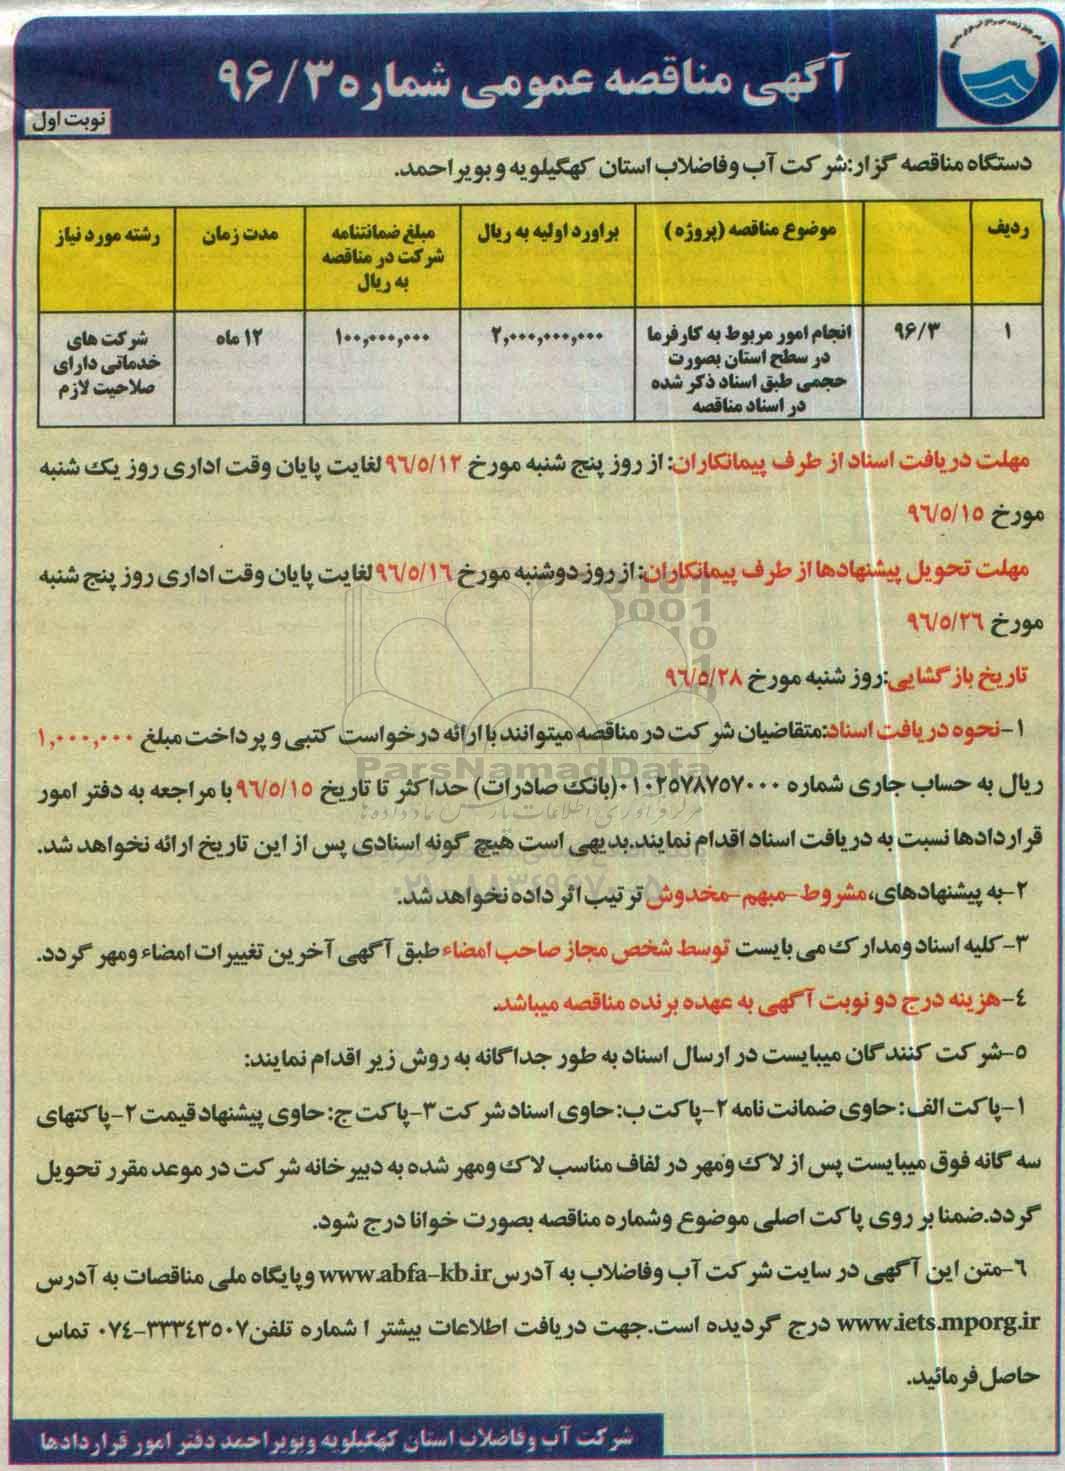 آگهی مناقصه عمومی شماره ۹۶/۳
نوبت اول
دستگاه مناقصه گزار:شرکت آب وفاضلاب استان کهگیلویه و بویراحمد.
ردیف
موضوع مناقصه (پروژه )
براورد اولیه به ریال
مبلغ ضمانتنامه
شرکت در مناقصه
به ریال
مدت زمان
رشته مورد نیاز
۱
۹۶/۳
انجام امور مربوط به کارفرما
در سطح استان بصورت
حجمی طبق اسناد ذکر شده
در اسناد مناقصه
۲,۰۰۰,۰۰۰,۰۰۰
۱۰۰,۰۰۰,۰۰۰
۱۲ ماه
شرکت های
خدماتی دارای
صلاحیت لازم
مهلت دریافت اسناد از طرف پیمانکاران: از روز پنج شنبه مورخ ۹۶/۵/۱۲ لغایت پایان وقت اداری روز یک شنبه
مورخ ۹۶/۵/۱۵
مهلت تحویل پیشنهادها از طرف پیمانکاران: از روز دوشنبه مورخ ۹۶/۵/۱۶ لغایت پایان وقت اداری روز پنج شنبه
مورخ ۹۶/۵/۲۶
تاریخ بازگشایی:روز شنبه مورخ ۹۶/۵/۲۸
۱-نحوه دریافت اسناد:متقاضیان شرکت در مناقصه میتوانند با ارائه درخواست کتبی و پرداخت مبلغ ۱,۰۰۰,۰۰۰
ریال به حساب جاری شماره ۰۱۰۲۵۷۸۷۵۷۰۰۰(بانک صادرات) حداکثر تا تاریخ ۹۶/۵/۱۵ با مراجعه به دفتر امور
قراردادها نسبت به دریافت اسناد اقدام نمایند.بدیهی است هیچ گونه اسنادی پس از این تاریخ ارائه نخواهد شد.
۲-به پیشنهادهای،مشروط-مبهم-مخدوش ترتیب اثر داده نخواهد شد.
۳-کلیه اسناد ومدارک می بایست توسط شخص مجاز صاحب امضاء طبق آگهی آخرین تغییرات امضاء ومهر گردد.
۴-هزینه درج دو نوبت آگهی به عهده برنده مناقصه میباشد.
۵-شرکت کنندگان میبایست در ارسال اسناد به طور جداگانه به روش زیر اقدام نمایند:
۱-پاکت الف: حاوی ضمانت نامه ۲-پاکت ب: حاوی اسناد شرکت ۳-پاکت ج: حاوی پیشنهاد قیمت ۲-پاکتهای
سه گانه فوق میبایست پس از لاک ومهر در لفاف مناسب لاک ومهر شده به دبیرخانه شرکت در موعد مقرر تحویل
گردد.ضمنا بر روی پاکت اصلی موضوع وشماره مناقصه بصورت خوانا درج شود.
۶-متن این آگهی در سایت شرکت آب وفاضلاب به آدرس www.abfa-kb.ir وپایگاه ملی مناقصات به آدرس
www.iets.mporg.ir درج گردیده است.جهت دریافت اطلاعات بیشتر ا شماره تلفن ۳۳۳۴۳۵۰۷-۰۷۴ تماس
حاصل فرمائید.
شرکت آب وفاضلاب استان کهگیلویه وبویراحمد دفتر امور قراردادها
ParsNamadData